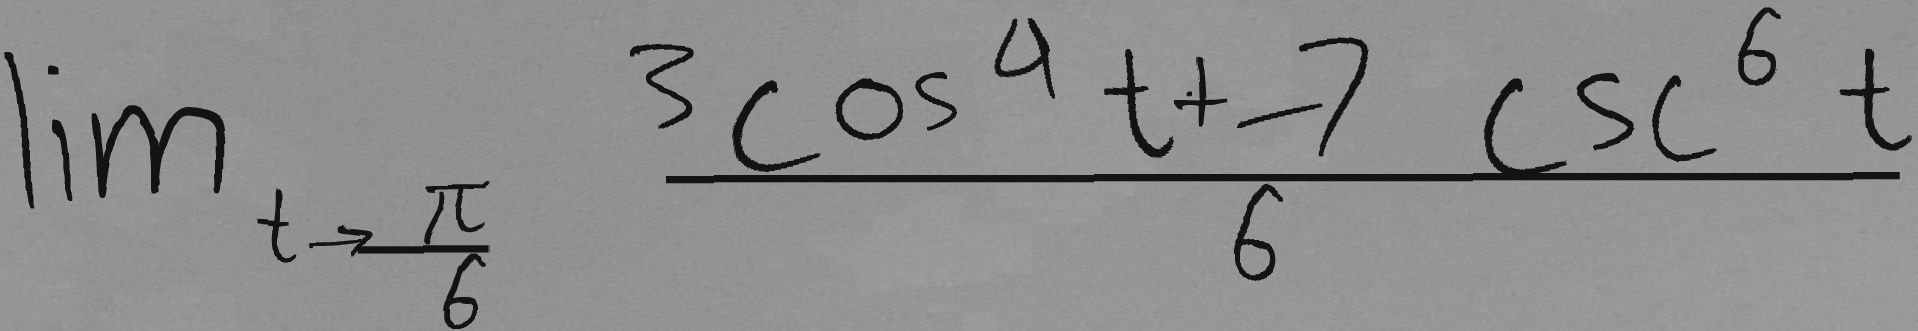 \lim_{t \to \frac{\pi}{6}} \frac{3 \cos^4 t + -7 \csc^6 t}{6}